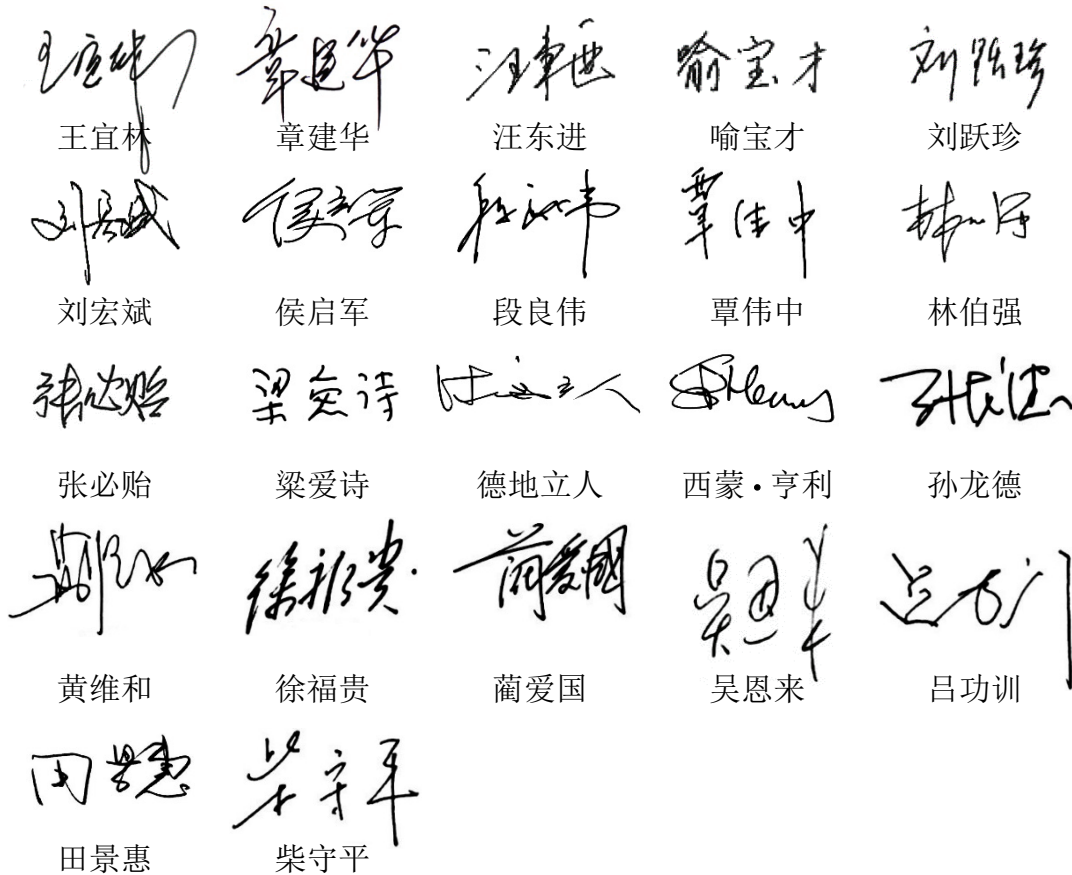 王宜林 章建华 汪东进 喻宝才 刘跃珍
刘宏斌 侯启军 段良伟 覃伟中 林伯强
张必贻 梁爱诗 德地立人 西蒙·亨利 孙龙德
黄维和 徐福贵 蔺爱国 吴恩来 吕功训
田景惠 柴守平